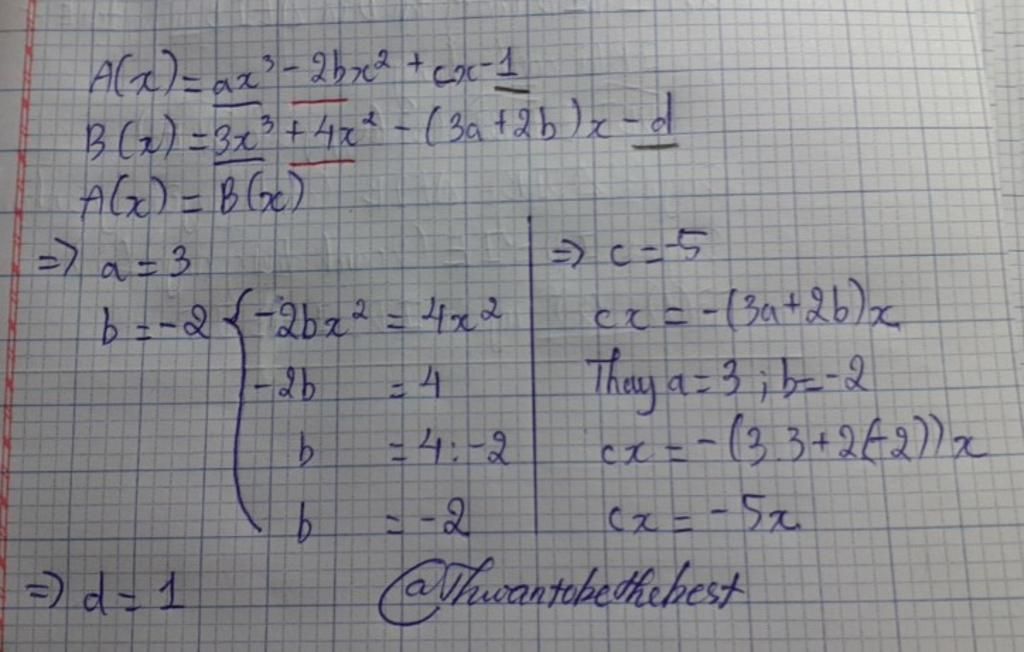 A(x) = ax³ - 2bx² + cx - 1
B(x) = 3x³ + 4x² - (3a + 2b)x - d
A(x) = B(x)
=> a = 3
b = -2 { -2bx² = 4x²
-2b = 4
b = 4 : -2
b = -2
=> c = -5
cx = -(3a + 2b)x
Thay a = 3 ; b = -2
cx = -(3.3 + 2(-2))x
cx = -5x
=> d = 1
@Thwantobethebest